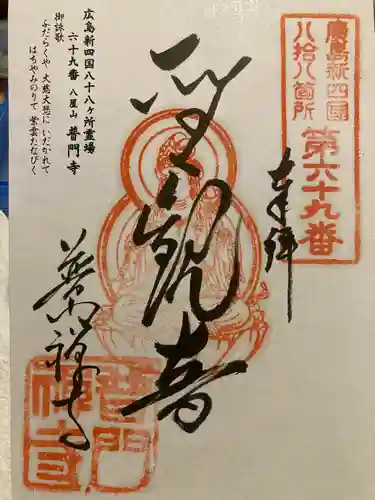 廣島新四國
八拾八箇所
第六十九番
奉拝
聖観音
普門禅寺
広島新四国八十八ヶ所霊場
六十九番 八屋山 普門寺
御詠歌
ふだらくや 大慈大悲に いだかれて
はちやみのりて 紫雲たなびく
普門
禅寺